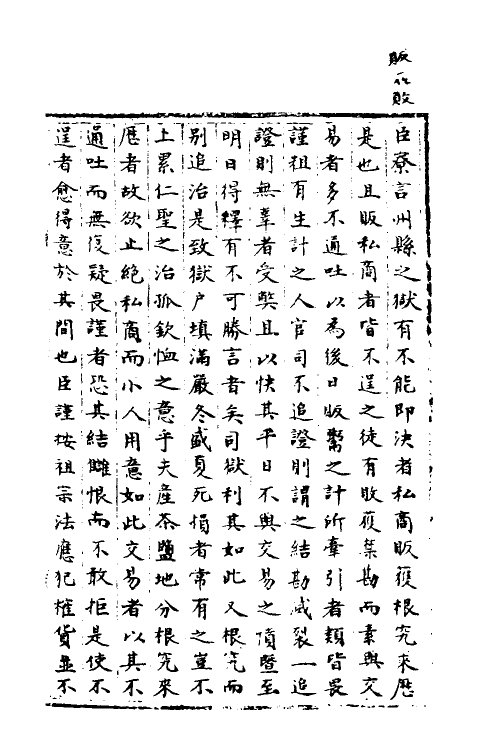 販疑敗
臣寮言州縣之獄有不能即決者私商販獲根究来歷
是也且販私商者皆不逞之徒有敗獲禁勘而素與交
易者多不通吐以為後日販鬻之計所牽引者類皆畏
謹粗有生計之人官司不追證則謂之結勘滅裂一追
證則無辜者受弊且以快其平日不與交易之憤暨至
明日得釋有不可勝言者矣司獄利其如此又根究而
別追治是致獄户填滿嚴冬盛夏死損者常有之豈不
上累仁聖之治孤欽恤之意乎夫產茶鹽地分根究來
歷者故欲止絶私商而小人用意如此交易者以其不
通吐而無復疑畏謹者恐其結讎恨而不敢拒是使不
逞者愈得意於其間也臣謹按祖宗法應犯榷貨並不